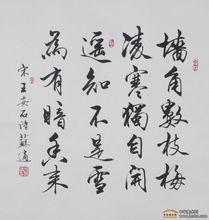 墙角数枝梅
凌寒獨自開
遥知不是雪
為有暗香来
宋王安石诗蘇適